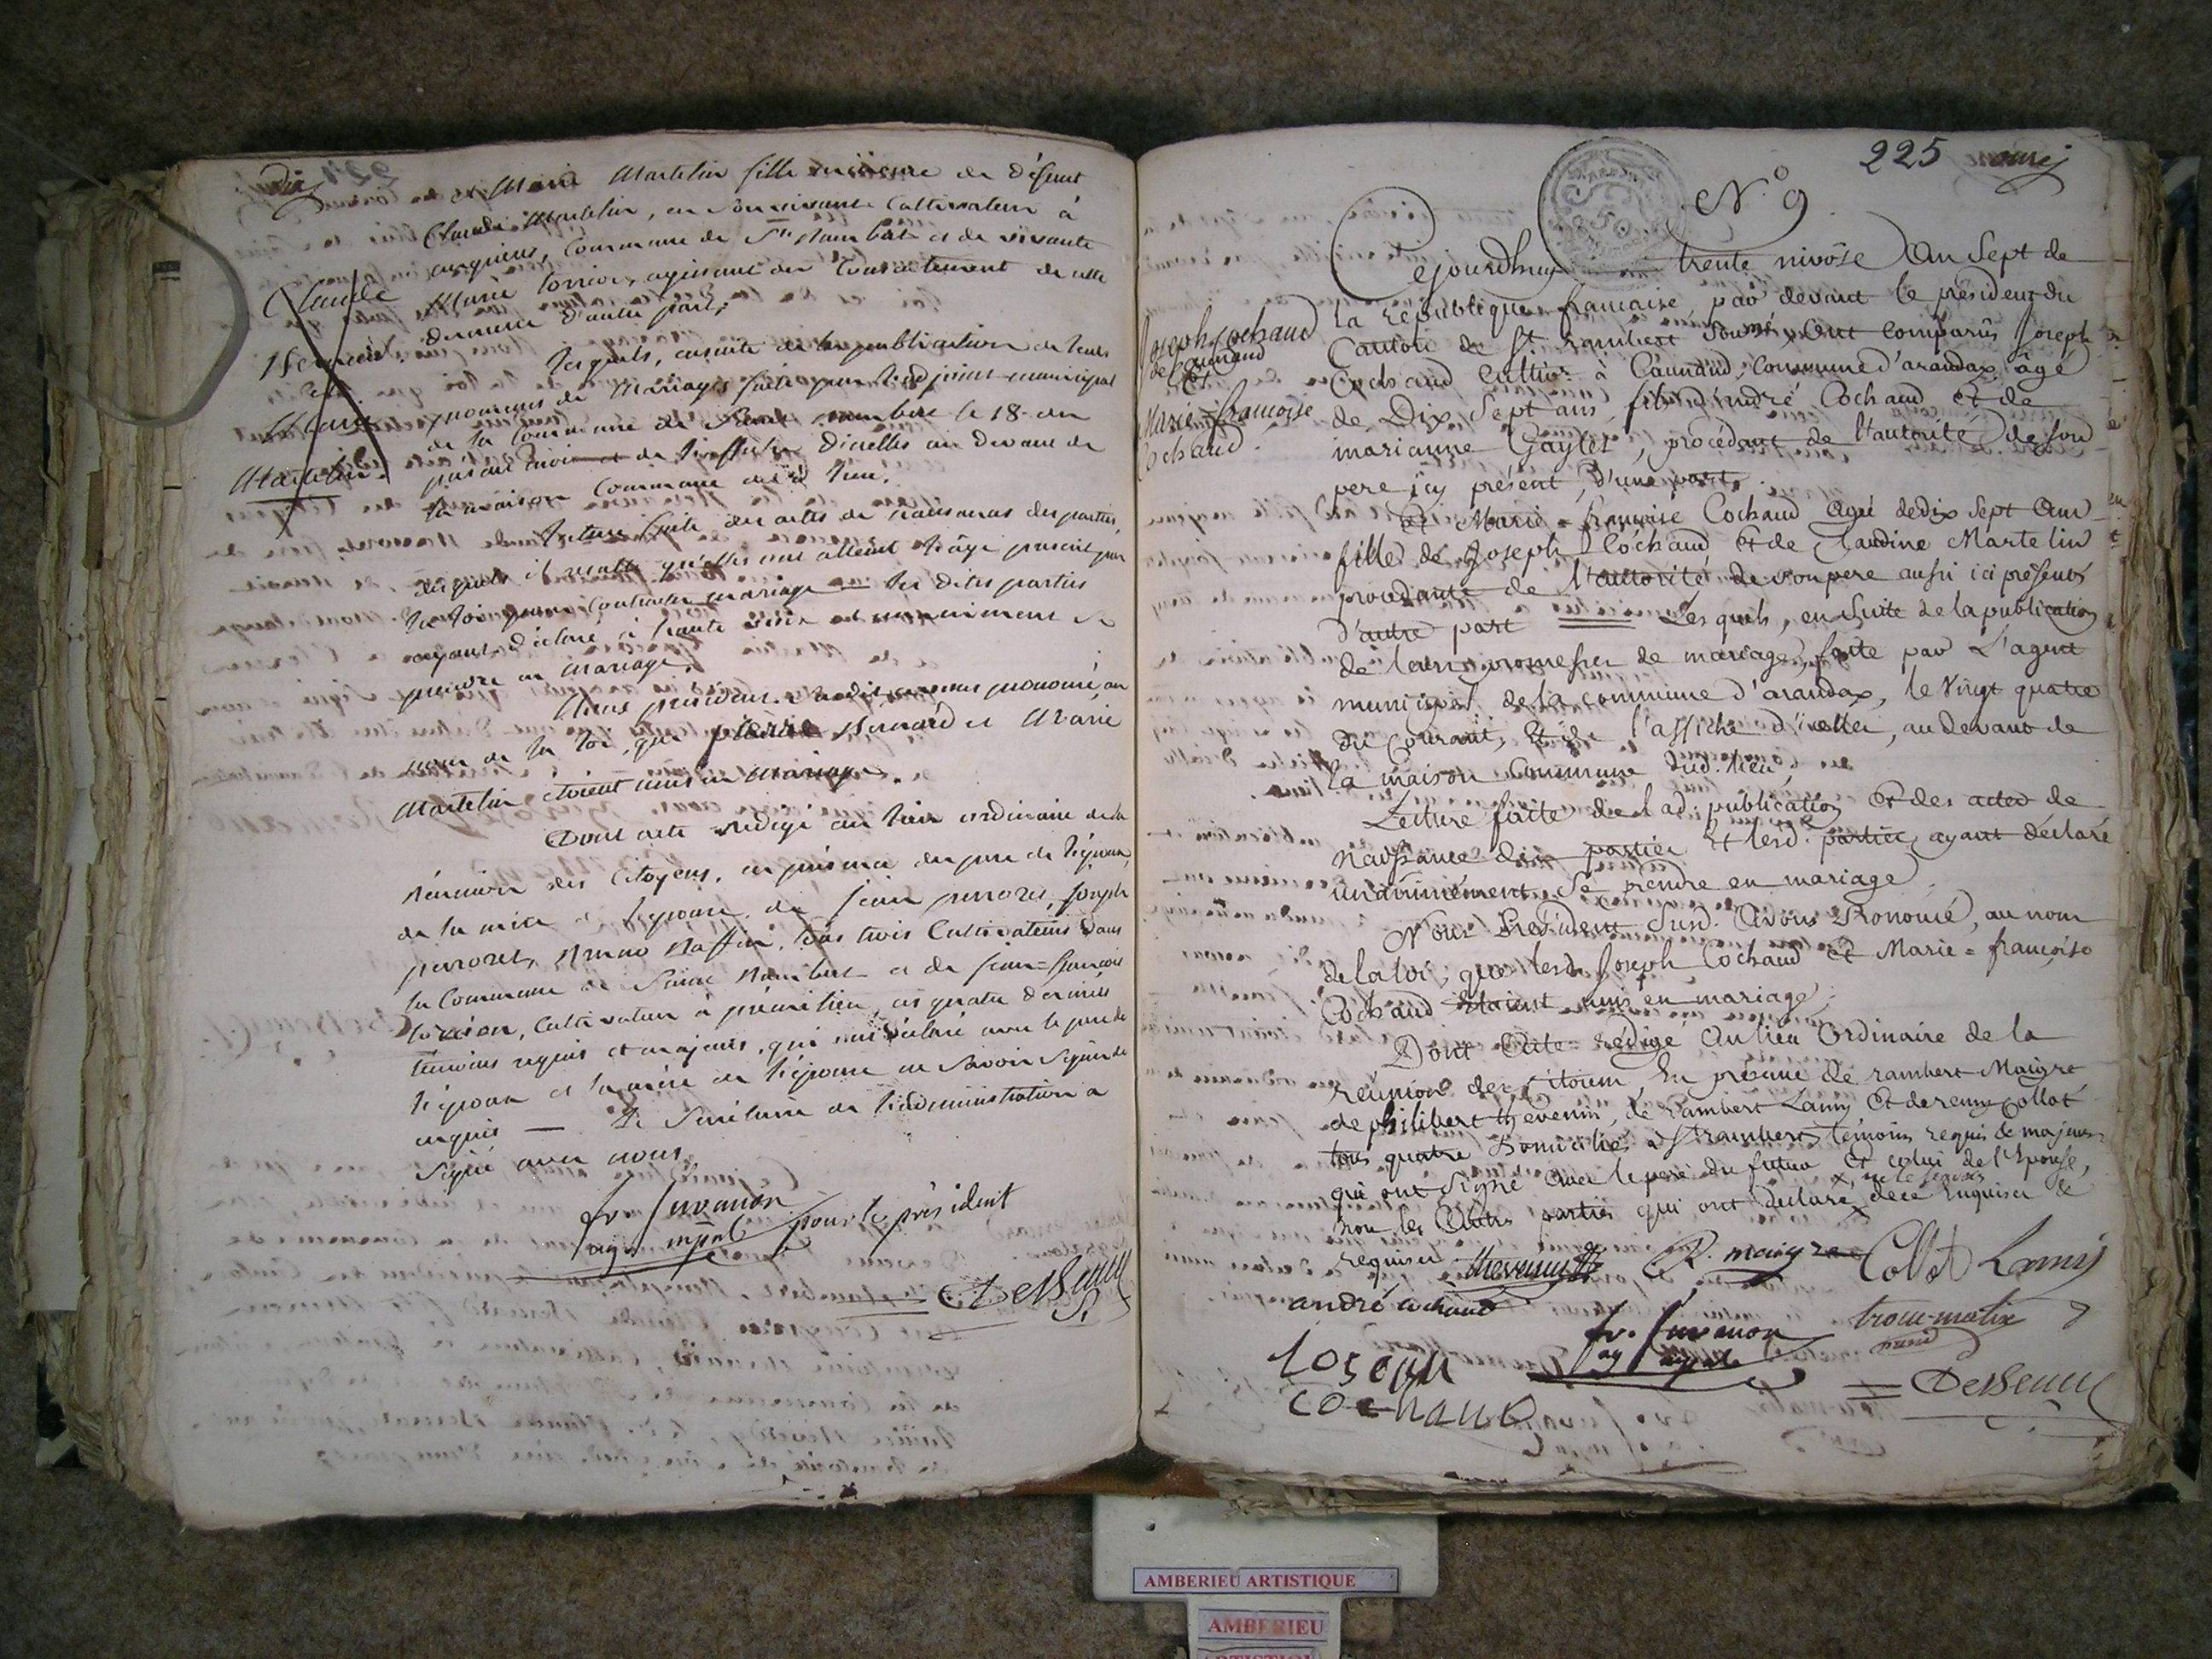 dix
et Marie Martelin fille mineure de défunt
Claude Martelin, en son vivant Cultivateur à
angrieres, Commune de St Rambert et de vivante
Marie torrion, agissant du Consentement de cette
derniere d'autre part;
Claude
Bernard
et
Marie
Martelin.
lesquels, ensuite de la publication de leurs
promesses de Mariages faite par l'adjoint municipal
de la Commune de Saint Rambert le 18 du
present mois et de l'affiche d'icelles au devant de
la maison Commune dud. lieu.
lecture faite des actes de naissances des parties,
desquels il resulte qu'elles ont atteint l'âge prescrit par
la loi pour Contracter mariage — les dites parties
ayant déclaré à haute voix et unanimement se
prendre en mariage.
Nous président susdit avons prononcé, au
nom de la loi, que pierre Bernard et Marie
Martelin étoient unis en Mariage.
Dont acte rédigé au lieu ordinaire de la
réunion des Citoyens, en présence du pere de l'époux,
de la mere de l'épouse, de jean perroret, joseph
perroret, Bruno Raffin, tous trois Cultivateurs dans
la Commune de Saint Rambert et de jean=françois
torrion, Cultivateur à prémilieu, ces quatre derniers
temoins requis et majeurs, qui ont déclaré avec le pere de
l'époux et la mère de l'épouse ne savoir signer de
ce requis — le Secrétaire de l'administration a
signé avec nous.
fr. Juvanon
ag. mpal pour le président
Desseuux
S.
225 onze
N.° 9
Cejourdhuy trente nivôse An Sept de
la République francaise, par devant le président du
Canton de St rambert soussigné Ont comparûs Joseph
Cochaud cultivr à Caunand, commune d'arandax, âgé
de Dix Sept ans, fils d'andré Cochaud et de
marianne Gaylet, procédant de l'autorité de son
pere icy présent, d'une part,
Joseph Cochaud
de Caunand
Et
Marie=francoise
Cochaud.
Et Marie=françoise Cochaud agée de dix Sept Ans
fille de Joseph Cochaud et de Claudine Martelin
procedante de l'autorité de son pere aussi ici présent
d'autre part === Les quels, en suite de la publication
de leurs promesses de mariage, faite par L'agent
municipal de la commune d'arandax, le vingt quatre
du Courant, Et de l'affiche d'icelles, au devant de
la maison Commune dud. lieu,
Lecture faite de lad. publication Et des actes de
naissance des parties Et lesd. parties ayant déclaré
unanimement se prendre en mariage
Nous President Susd. Avons Prononcé, au nom
de la loi, que lesd. Joseph Cochaud et Marie=françoise
Cochaud Etaient unis en mariage.
Dont Acte rédigé au lieu Ordinaire de la
réunion des Citoiens, En présence de rambert Maigre
de philibert thevenin, de rambert Lamy Et de remy Collot
tous quatre Domicilies a St rambert, temoins requis & majeurs
qui ont Signé avec le pere du futur Et celui de l'Epouse,
x, ne le scavoir
non les Autres parties qui ont declaré x de ce Enquises &
requises. thevenin R. maigre Collot Lamy
andré cochaud
fr. Juvanon
ag mpal
trou-matix
joseph
cochaud
Desseuux
AMBERIEU ARTISTIQUE
AMBERIEU
ARTISTIQUE